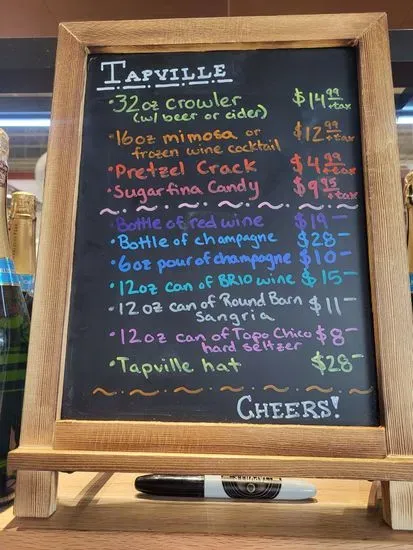 TAPVILLE
• 32oz crowler $14 99 +tax
(w/ beer or cider)
• 16oz mimosa or $12 99 +tax
frozen wine cocktail
• Pretzel Crack $4 99 +tax
• Sugarfina Candy $9 95 +tax
• Bottle of red wine $19-
• Bottle of champagne $28-
• 6oz pour of champagne $10-
• 12oz can of BRIO wine $15-
• 12oz can of Round Barn $11-
Sangria
• 12oz can of Topo Chico $8-
hard seltzer
• Tapville hat $28-
CHEERS!